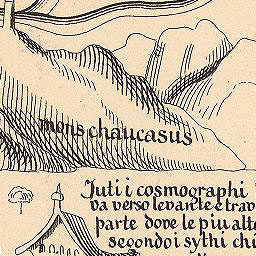 mons chaucasus
Juti i cosmographi
va verso levante e trav
parte dove le piu alte
segondo i sythi chi